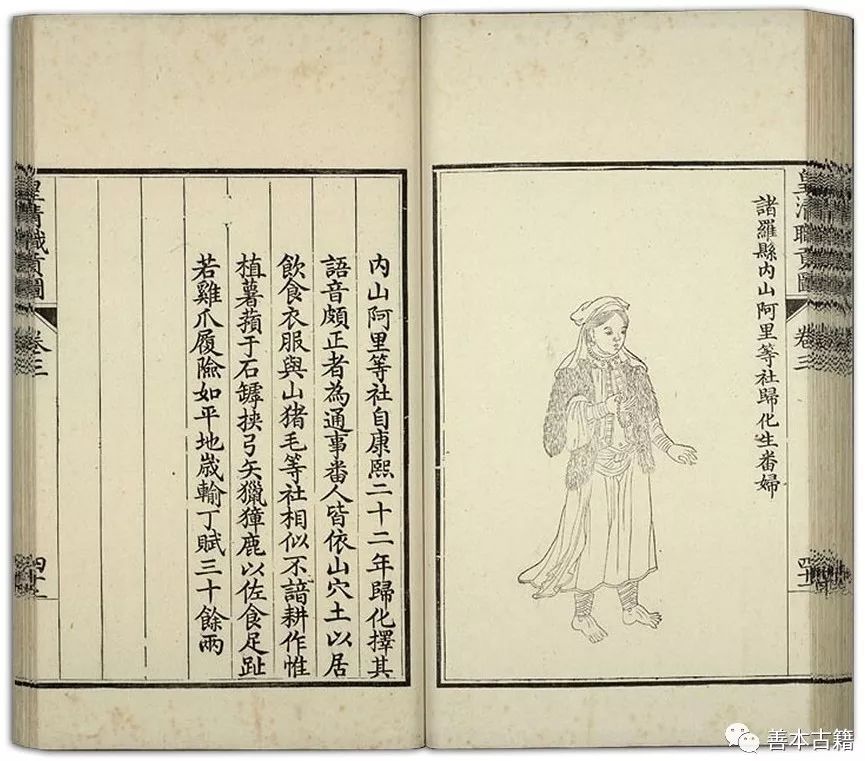 諸羅縣内山阿里等社歸化生番婦
皇清職貢圖
卷三
内山阿里等社自康熙二十二年歸化擇其
語音頗正者為通事番人皆依山穴土以居
飲食衣服與山猪毛等社相似不諳耕作惟
植薯蕷于石罅挾弓矢獵獐鹿以佐食足趾
若雞爪履險如平地歲輸丁賦三十餘兩
皇清職貢圖
卷三
善本古籍